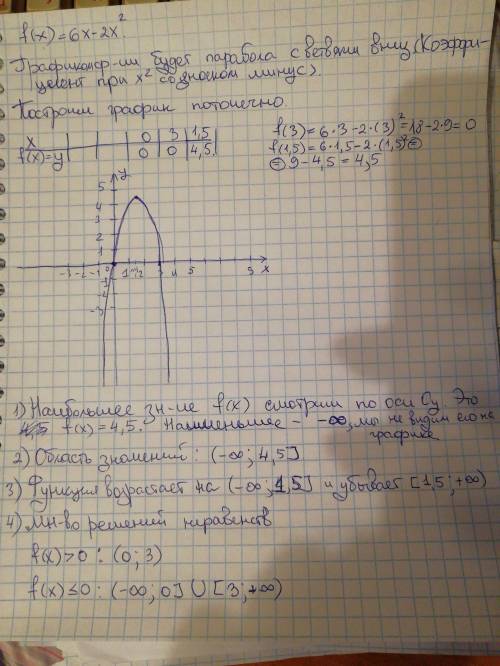 f(x)=6x-2x²
Графиком ф-ии будет парабола с ветвями вниз (Коэффи-
циент при x² со знаком минус).
Построим график поточечно
x 0 3 1,5
f(x)=y 0 0 4,5
f(3)=6·3-2·(3)²=18-2·9=0
f(1,5)=6·1,5-2·(1,5)²=
=9-4,5=4,5
y
5
4
3
2
1
-3 -2 -1 0 1 2 3 4 5 9 x
-1
-2
-3
1) Наибольшее зн-ие f(x) смотрим по оси Oy. Это
4,5 f(x)=4,5. Наименьшее - -∞, мы не видим его на
графике
2) Область значений: (-∞; 4,5]
3) Функция возрастает на (-∞; 1,5] и убывает [1,5; +∞)
4) Мн-во решений неравенств
f(x)>0 : (0; 3)
f(x)≤0 : (-∞; 0] ∪ [3; +∞)